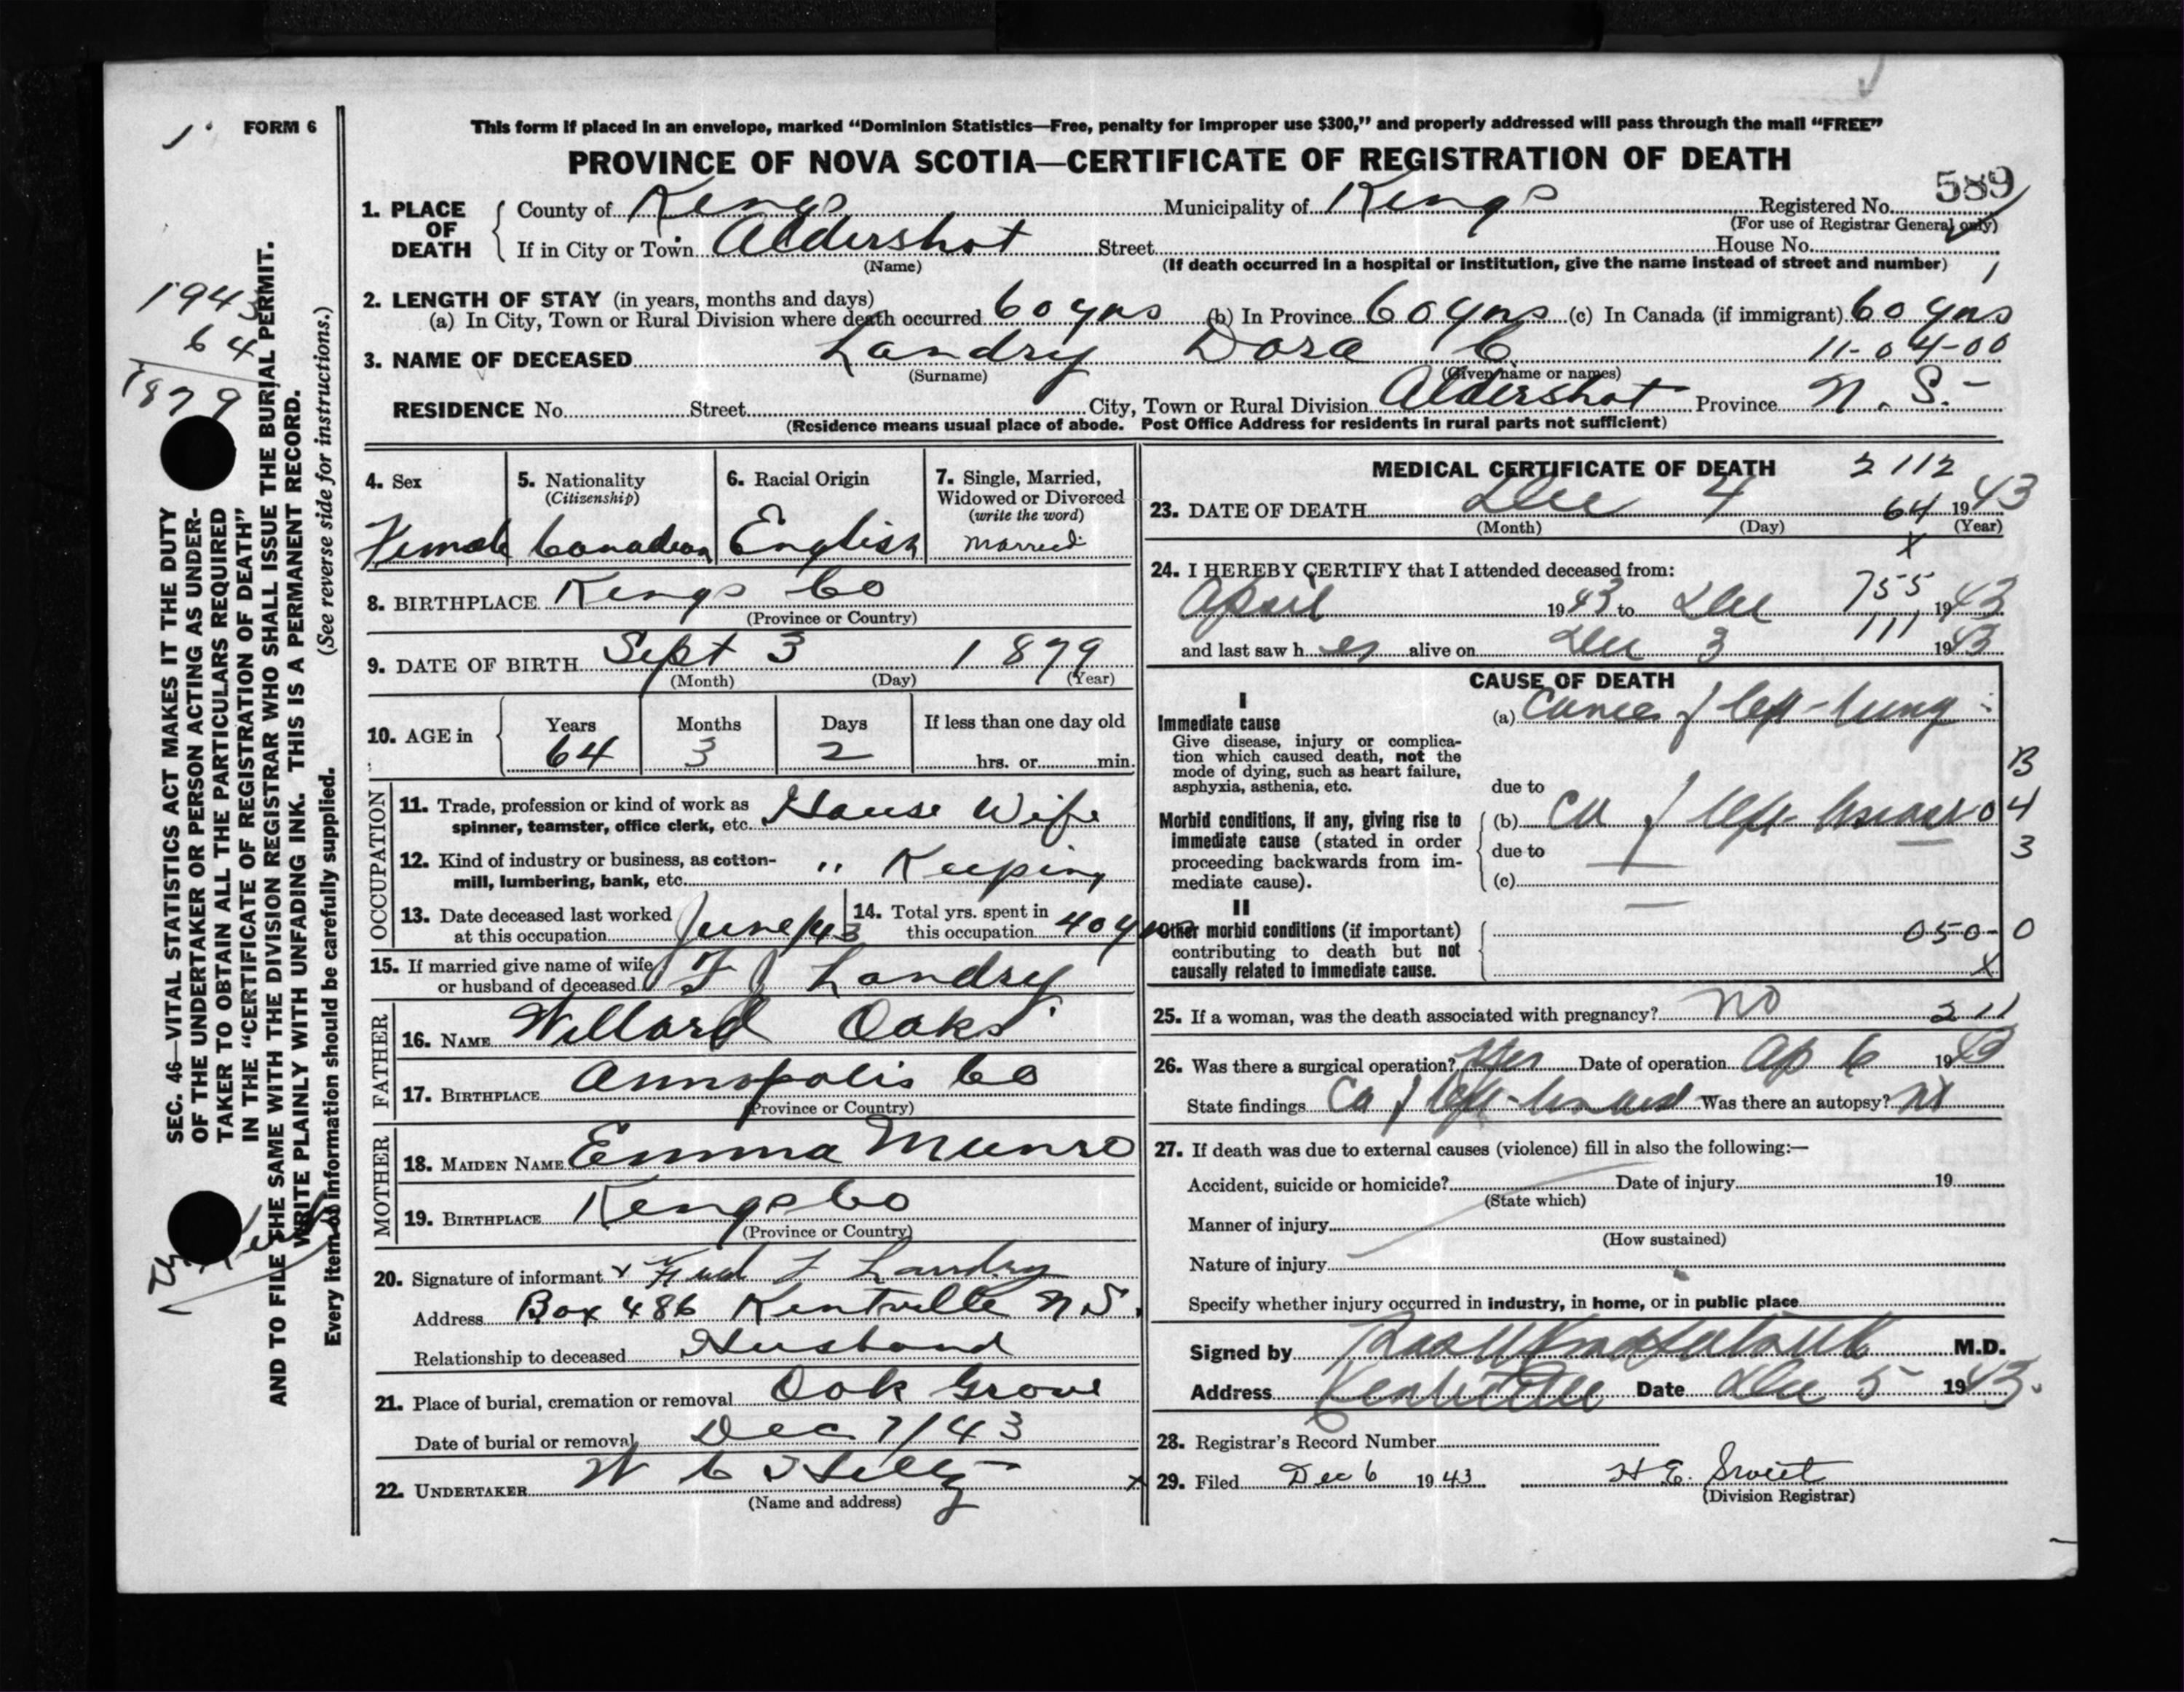 FORM 6
This form if placed in an envelope, marked “Dominion Statistics—Free, penalty for improper use $300,” and properly addressed will pass through the mail “FREE”
PROVINCE OF NOVA SCOTIA—CERTIFICATE OF REGISTRATION OF DEATH
589
1. PLACE OF DEATH County of Kings Municipality of Kings Registered No.
(For use of Registrar General only)
If in City or Town Aldershot Street House No.
(Name) (If death occurred in a hospital or institution, give the name instead of street and number)
2. LENGTH OF STAY (in years, months and days)
(a) In City, Town or Rural Division where death occurred 60 yrs (b) In Province 60 yrs (c) In Canada (if immigrant) 60 yrs
3. NAME OF DECEASED Landry Dora C 11-04-00
(Surname) (Given name or names)
RESIDENCE No. Street City, Town or Rural Division Aldershot Province N. S.
(Residence means usual place of abode. Post Office Address for residents in rural parts not sufficient)
4. Sex Female
5. Nationality (Citizenship) Canadian
6. Racial Origin English
7. Single, Married, Widowed or Divorced (write the word) Married
8. BIRTHPLACE Kings Co
(Province or Country)
9. DATE OF BIRTH Sept 3 1879
(Month) (Day) (Year)
10. AGE in Years 64 Months 3 Days 2 If less than one day old
hrs. or min.
OCCUPATION
11. Trade, profession or kind of work as spinner, teamster, office clerk, etc. House Wife
12. Kind of industry or business, as cotton-mill, lumbering, bank, etc. " Keeping
13. Date deceased last worked at this occupation June/43
14. Total yrs. spent in this occupation 40 yrs
15. If married give name of wife or husband of deceased F J Landry
FATHER
16. NAME Willard Oaks
17. BIRTHPLACE Annopolis Co
(Province or Country)
MOTHER
18. MAIDEN NAME Emma Munro
19. BIRTHPLACE Kings Co
(Province or Country)
20. Signature of informant x Fred J Landry
Address Box 486 Kentville N.S.
Relationship to deceased Husband
21. Place of burial, cremation or removal Oak Grove
Date of burial or removal Dec 7/43
22. UNDERTAKER W C
(Name and address)
MEDICAL CERTIFICATE OF DEATH 2112
23. DATE OF DEATH Dec 4 64 1943
(Month) (Day) (Year)
x
24. I HEREBY CERTIFY that I attended deceased from:
April 1943 to Dec 755 1943
and last saw her alive on Dec 3 111 1943
CAUSE OF DEATH
I
Immediate cause
Give disease, injury or complication which caused death, not the mode of dying, such as heart failure, asphyxia, asthenia, etc.
(a) Cancer of left lung
due to
Morbid conditions, if any, giving rise to immediate cause (stated in order proceeding backwards from immediate cause).
(b) Ca of left breast
due to
(c)
B
04
3
II
Other morbid conditions (if important) contributing to death but not causally related to immediate cause.
050-0
x
25. If a woman, was the death associated with pregnancy? no 211
26. Was there a surgical operation? Yes Date of operation Ap 6 1943
State findings Ca of left breast Was there an autopsy? no
27. If death was due to external causes (violence) fill in also the following:—
Accident, suicide or homicide? Date of injury 19
(State which)
Manner of injury
(How sustained)
Nature of injury
Specify whether injury occurred in industry, in home, or in public place
Signed by M.D.
Address Kentville Date Dec 5 1943.
28. Registrar's Record Number
29. Filed Dec 6 1943 H E. Sweet
(Division Registrar)
1943
64
1879
SEC. 46—VITAL STATISTICS ACT MAKES IT THE DUTY
OF THE UNDERTAKER OR PERSON ACTING AS UNDER-
TAKER TO OBTAIN ALL THE PARTICULARS REQUIRED
IN THE “CERTIFICATE OF REGISTRATION OF DEATH”
AND TO FILE THE SAME WITH THE DIVISION REGISTRAR WHO SHALL ISSUE THE BURIAL PERMIT.
WRITE PLAINLY WITH UNFADING INK. THIS IS A PERMANENT RECORD.
Every item of information should be carefully supplied. (See reverse side for instructions.)